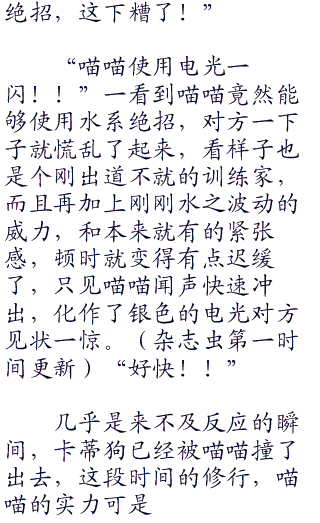 绝招，这下糟了！”
“喵喵使用电光一
闪！！”一看到喵喵竟然能
够使用水系绝招，对方一下
子就慌乱了起来，看样子也
是个刚出道不就的训练家，
而且再加上刚刚水之波动的
威力，和本来就有的紧张
感，顿时就变得有点迟缓
了，只见喵喵闻声快速冲
出，化作了银色的电光对方
见状一惊。（杂志虫第一时
间更新）“好快！！”
几乎是来不及反应的瞬
间，卡蒂狗已经被喵喵撞了
出去，这段时间的修行，喵
喵的实力可是